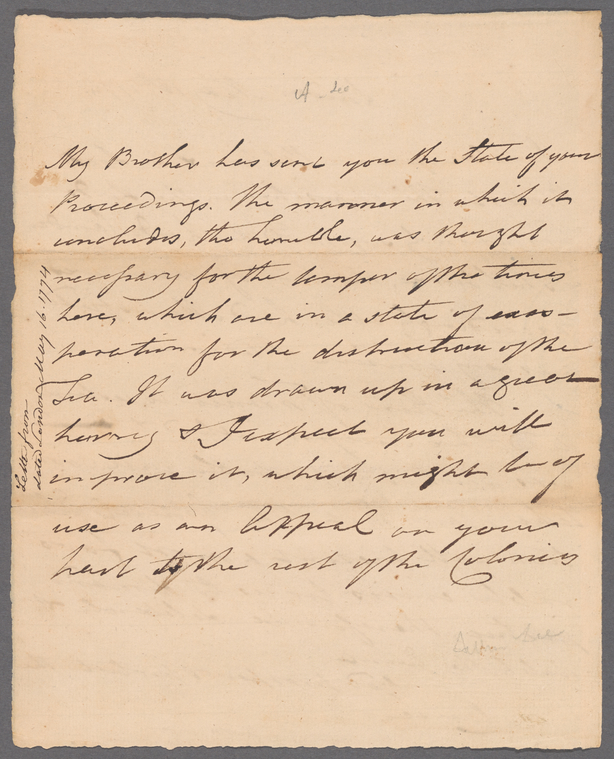 A. Lee
My Brother has sent you the State of your
Proceedings. The manner in which it
concludes, tho humble, was thought
necessary for the temper of the times
here, which are in a state of exas-
peration for the destruction of the
Tea. It was drawn up in a great
hurry & I expect you will
improve it, which might be of
use as an Appeal on your
part to the rest of the Colonies
Letter from
dated London May 16. 1774
Lee